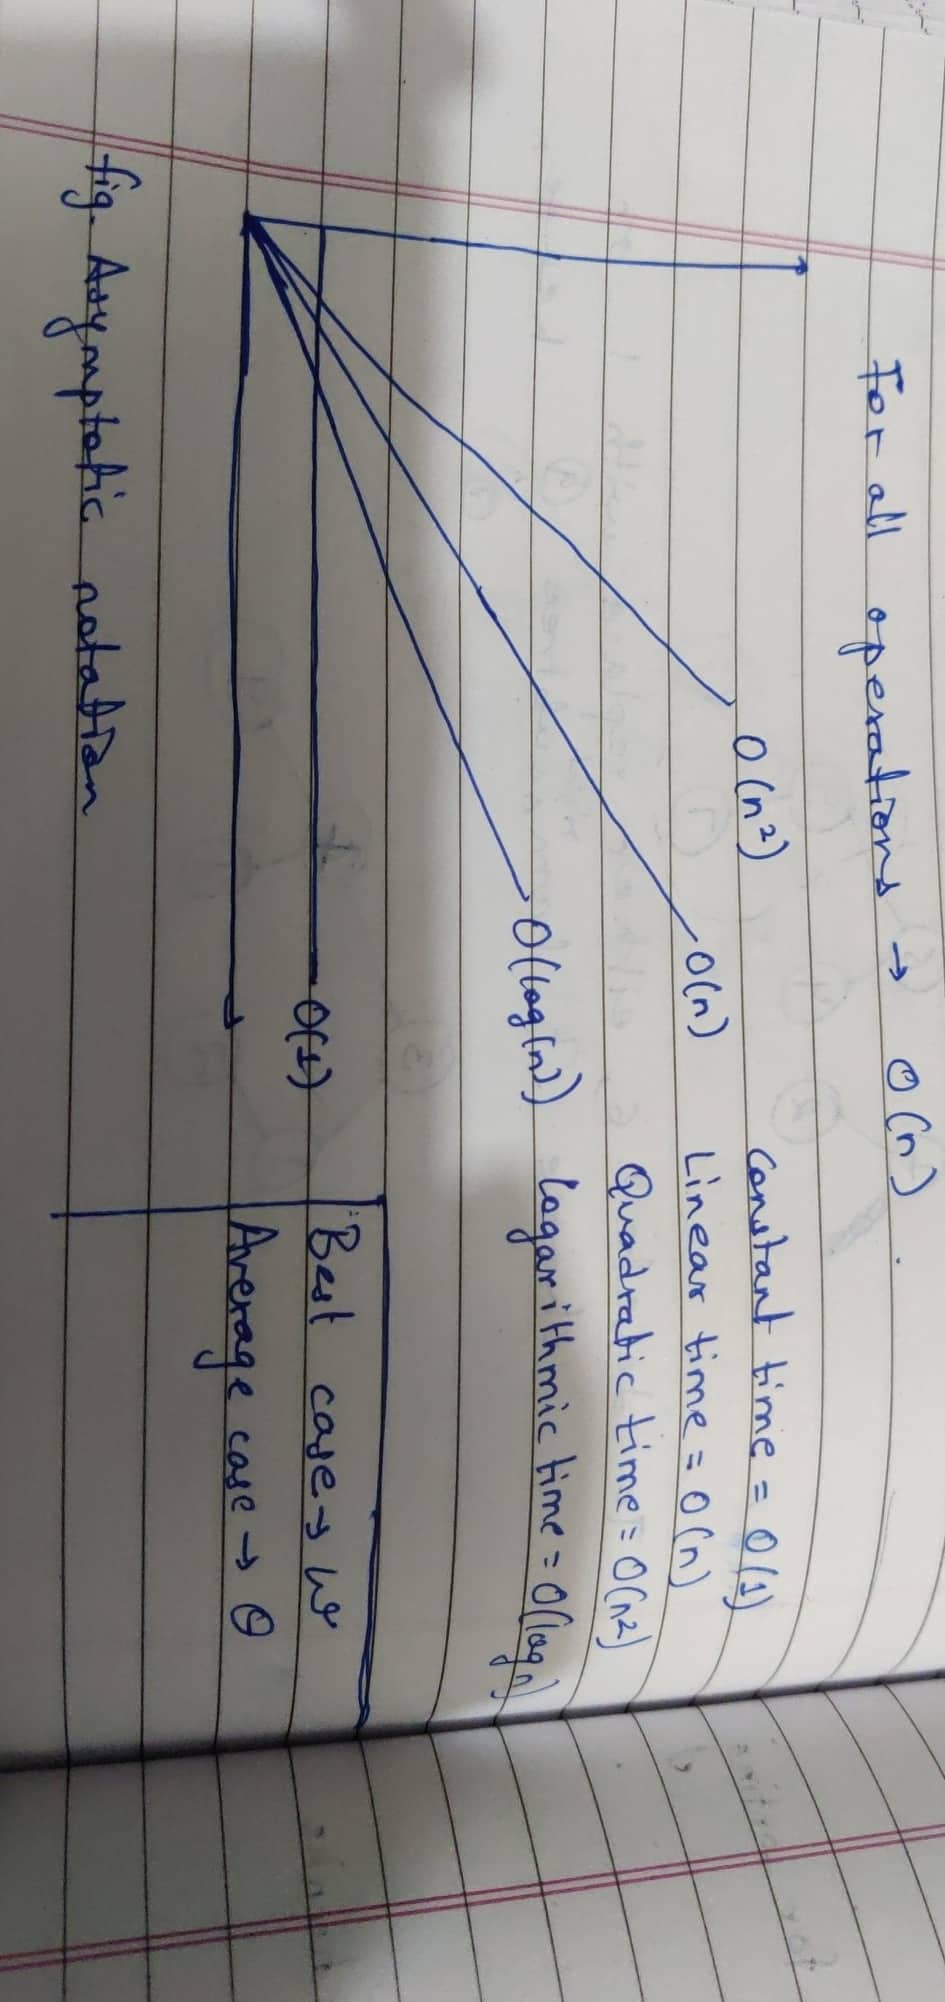 For all operations → O(n).
O(n²)
Constant time = O(1)
O(n)
Linear time = O(n)
Quadratic time = O(n²)
O(log(n))
logarithmic time = O(log n)
O(1)
Best case → ω
Average case → θ
fig. Asymptotic notation